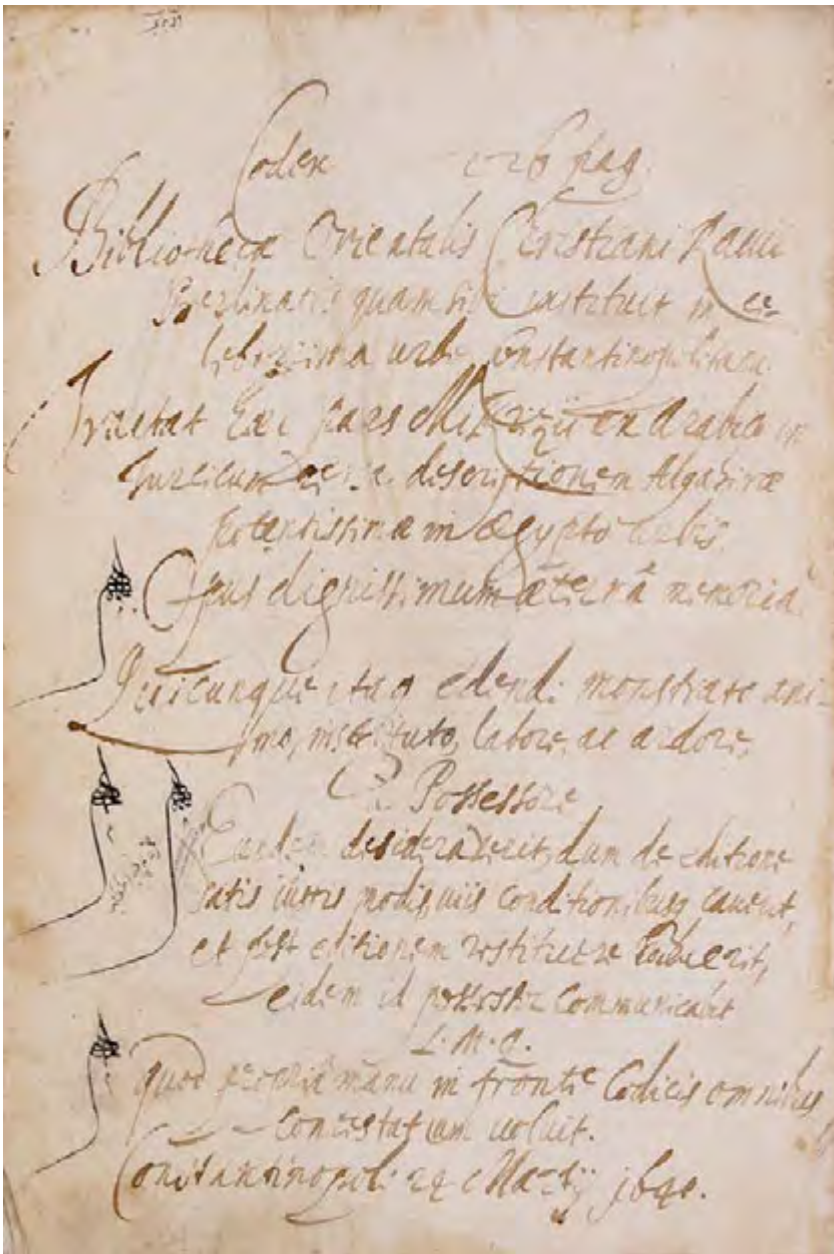 Codex pag.
Bibliotheca Orientalis Christiani Ravii
Berlinatis quam sibi instituit in ce-
leberrima urbe Constantinopolitana.
Tractat haec pars ex Arabico in
Turcicum descriptionem Algahirae
potentissimae in Aegypto urbis.
Opus dignissimum aeterna memoria.
Quicunque itaq edendi monstrare ani-
mo, instituto, labore, ac ardore,
Possessore
Eundem desideraverit, dum de editione
satis iustis modis, conditionibusq caverit,
et post editionem restituere voluerit,
eidem id possessor communicabit
L. M. Q.
quod propria manu in fronte Codicis omnibus
contestatum voluit.
Constantinopoli Martij 1640.